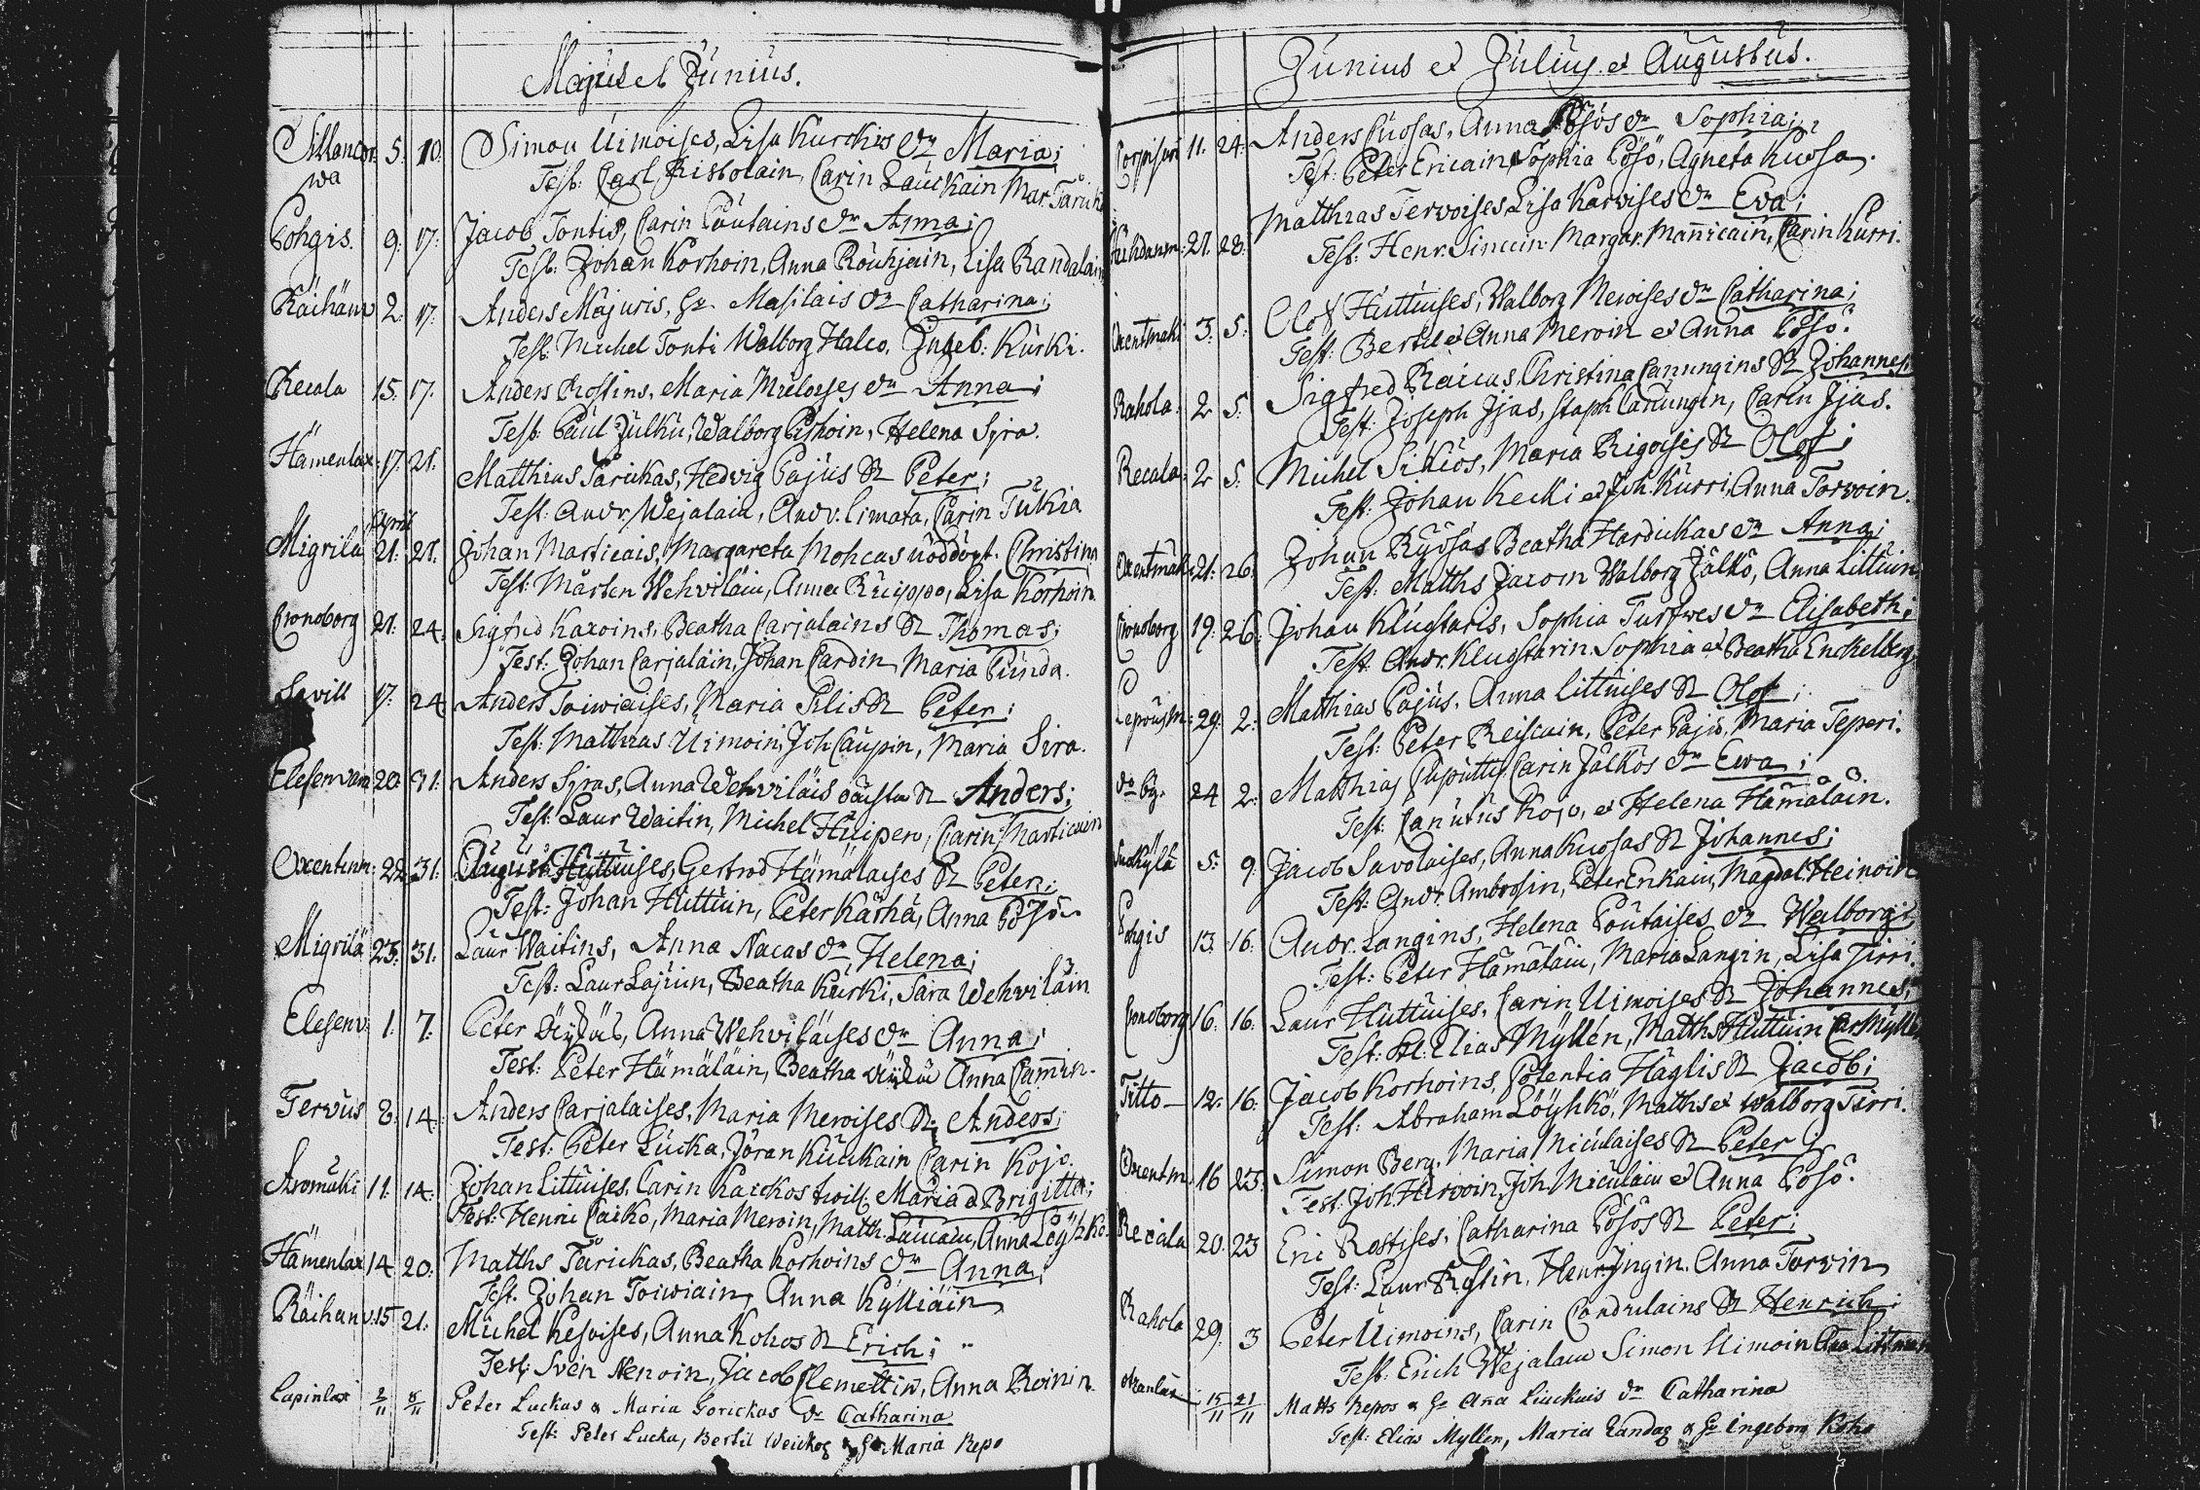 Majus et Junius.
Sillancor 5. 10. Simon Uimoises, Lisa Kurckis Dr Maria;
wa Test: Carl Ristolain, Carin Lauckain Mar.
Pohgis. 9. 17. Jacob Tontis, Carin Pautains Dr Anna;
Test: Johan Korhoin, Anna Rouhjain, Lisa Randalain
Räihänv 2. 17. Anders Majuris, Hr Masilais Dr Catharina;
Test: Michel Tonti Walborg Halco, Ingeb: Kurki.
Recala 15. 17. Anders Rossins, Maria Dr Anna;
Test: Paul Julku, Walborg Helena Sira.
Hämenlax 17. 21. Matthias Tarickas, Hedvig Pajus Sr Peter;
Test: Andr. Wejalain, Andr. Limata, Carin Tukia
April
Migrilä 21. 21. Johan Marticais, Margareta Mohcas nöddöpt. Christina
Test: Mårten Wehviläin, Anna Lisa Korhoin
Cronoborg 21. 24. Sigfrid Karoins, Beatha Carjalains Sr Thomas;
Test: Johan Carjalain, Johan Cardin, Maria Pünda.
Savill 17. 24 Anders Toiwiaises, Maria Pilis Sr Peter;
Test: Matthias Uimoin, Joh Caupin, Maria Sira.
Elesenvam 20. 31. Anders Siras, Anna Wehviläis oäcta Sr Anders;
Test: Laur Waitin, Michel Huipero, Carin Marticain
Oxentum: 22. 31. August Huttuises, Gertrud Hämäläises Sr Peter;
Test: Johan Huttuin, Peter Kärhä, Anna Pösö
Migrilä 23. 31. Laur Waitins, Anna Nacas Dr Helena;
Test: Laur Lajuin, Beatha Kurki, Sara Wehviläin
Elesenv. 1. 7. Peter Anna Wehviläises Dr Anna;
Test: Peter Hämäläin, Beatha Anna Camin.
Tervus 8. 14. Anders Carjalaises, Maria Mervises Sr Anders;
Test: Peter Lucka, Jöran Kuckain Carin Kojo.
Aromäki 11. 14. Johan Littuises, Carin Kaickos twill. Maria & Brigitta;
Test: Henric Caiko, Maria Mervin, Matth. Laucain, Anna Löyhkö
Hämenlax 14 20. Matths Tarickas, Beatha Korhoins Dr Anna;
Test. Johan Toiwiain, Anna Kylliäin
Räihanv. 15 21. Michel Kesoises, Anna Kokos Sr Erich;
Test: Sven Nenoin, Jacob Clemettin, Anna Roinin.
Lapinlax 2/11 8/11 Peter Luckas & Maria Gorickas Dr Catharina
Test: Peter Lucka, Bertil Weickog & Hr Maria Repo
Junius et Julius. et Augustus.
11. 24. Anders Cuosas, Anna Pösös Dr Sophia;
Test: Peter Ericain, Sophia Pösö, Agneta Kuosa.
21. 28. Matthias Tervoises, Lisa Karvises Dr Eva;
Test: Henr. Sinccin Margar. Mannicain, Carin Kurri.
Oxentmäki 3. 5. Olof Huttuises, Walborg Mervises Dr Catharina;
Test: Bertil et Anna Mervin et Anna Pösö.
Rahola. 2 5. Sigfred Raicus, Christina Canungins Sr Johannes;
Test: Joseph Ijas, Staph Canungin, Carin Ijas.
Recala. 2 5. Michel Sikiös, Maria Rigoises Sr Olof;
Test: Johan Kecki et Joh. Kurri, Anna Torvoin.
Oxentmäk 21. 26. Johan Ryösas Beatha Hardickas Dr Anna;
Test. Matths Jacoin Walborg Jälkö, Anna Littuin
Cronoborg 19. 26. Johan Klugstaris, Sophia Tursves Dr Elisabeth;
Test. Andr. Klugstarin Sophia et Beatha Enckelberg
29. 2. Matthias Pajus, Anna Littuises Sr Olof;
Test: Peter Reiscain, Peter Pajo, Maria Teperi.
24 2. Matthias Puputtis Carin Jälkös Dr Ewa;
Test: Canutus Kojo, et Helena Hämäläin.
5. 9. Jacob Savolaises, Anna Kuosas Sr Johannes;
Test: Andr. Ambrosin, Peter Enkain, Magdal. Heinoin
Pohgis 13. 16. Andr. Langins, Helena Poutaises Dr Walborg;
Test: Peter Hämäläin, Maria Langin, Lisa Jirri.
Cronoborg 16. 16. Laur Huttuises, Carin Uimoises Sr Johannes;
Test: Elias Myllen, Matths Huttuin Car Mylle
Titto 12. 16. Jacob Korhoins, Potentia Häglis Sr Jacob;
Test: Abraham Löyhkö, Maths et Walborg Tirri.
Oxentm. 16 23. Simon Berg, Maria Miculaises Sr Peter;
Test: Joh. Hirvoin, Joh. Miculain et Anna Pösö.
Recala 20. 23 Eric Rostises, Catharina Pösös Sr Peter;
Test: Laur Rostin, Henr. Ingin, Anna Torvin
Rahola 29. 3 Peter Uimoins, Carin Condulains Sr Henrich;
Test: Erich Wejalain Simon Uimoin
15/11 21/11 Matts Repos & Hr Anna Liuckuis Dr Catharina
Test: Elias Myllen, Maria & Hr Ingeborg Koho